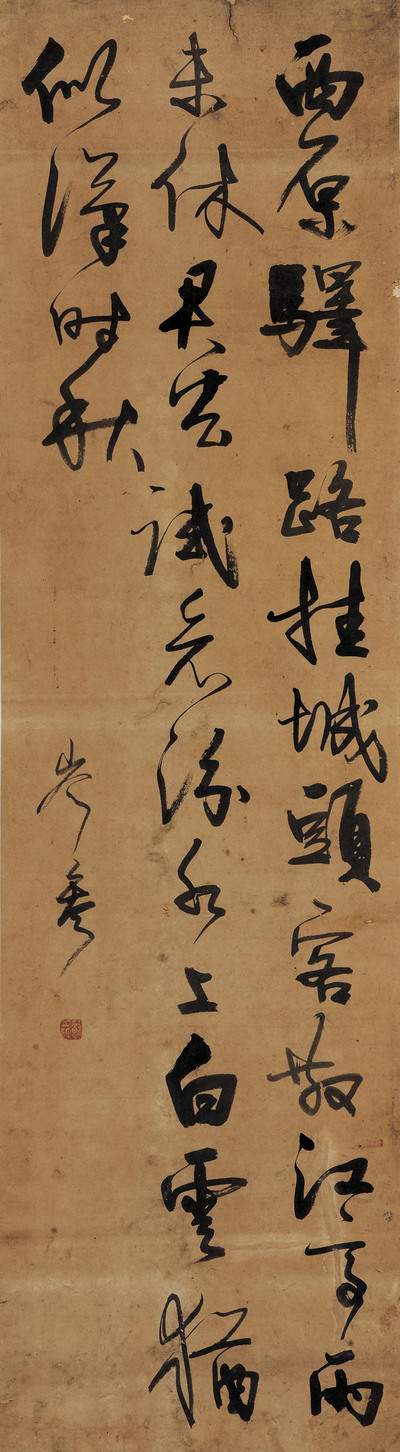 西原驛路挂城頭客散江亭雨
未休君去試看汾水上白雲猶
似漢時秋 岑參